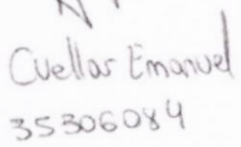 Cuellar Emanuel
35306084